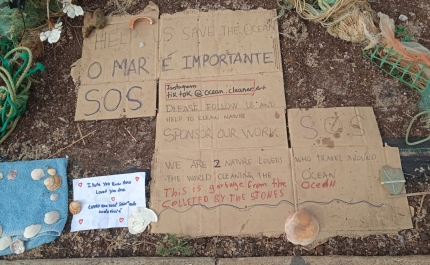 HELP US SAVE THE OCEAN
O MAR É IMPORTANTE
S.O.S
Instagram
tiktok @ocean.cleaner
PLEASE FOLLOW US AND
HELP TO CLEAN NATURE
SPONSOR OUR WORK
WE ARE 2 NATURE LOVERS
THE WORLD CLEANING THE
This is garbage from the
COLLETED BY THE STONES
S.O.S
WHO TRAVEL AROUND
OCEAN
OCEAN
I hate you
Loved you